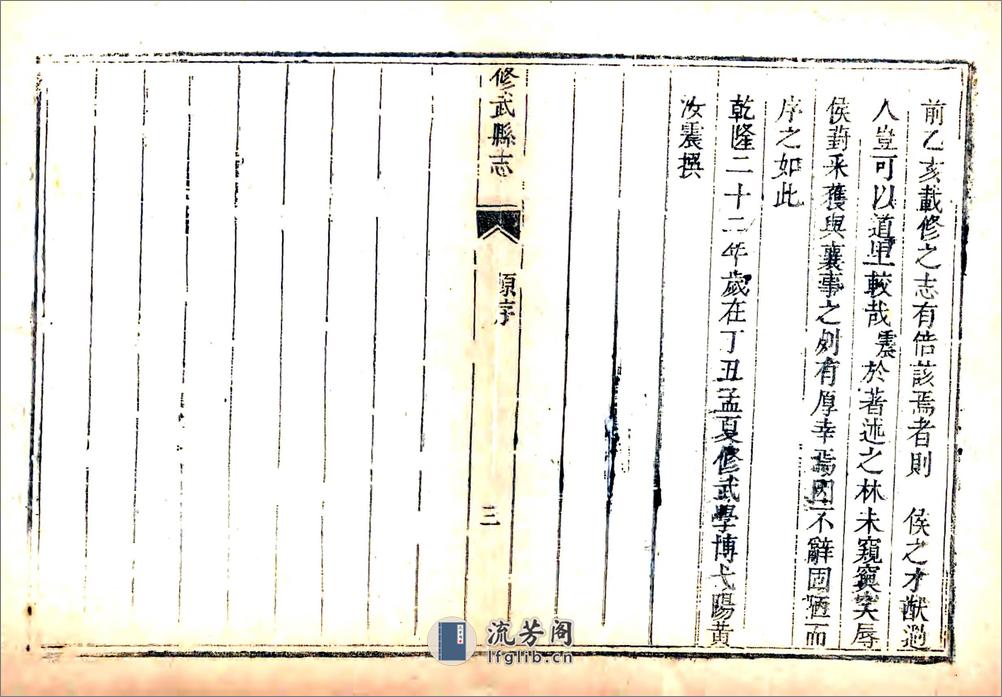 前乙亥載修之志有倍該焉者則　侯之才猷過
人豈可以道里較哉震於著述之林未窺窔突辱
侯葑采獲與襄事之列有厚幸焉因不辭固陋而
序之如此
乾隆二十二年歲在丁丑孟夏修武學博弋陽黃
汝震撰
修武縣志
序
三
流芳阁
lfglib.cn